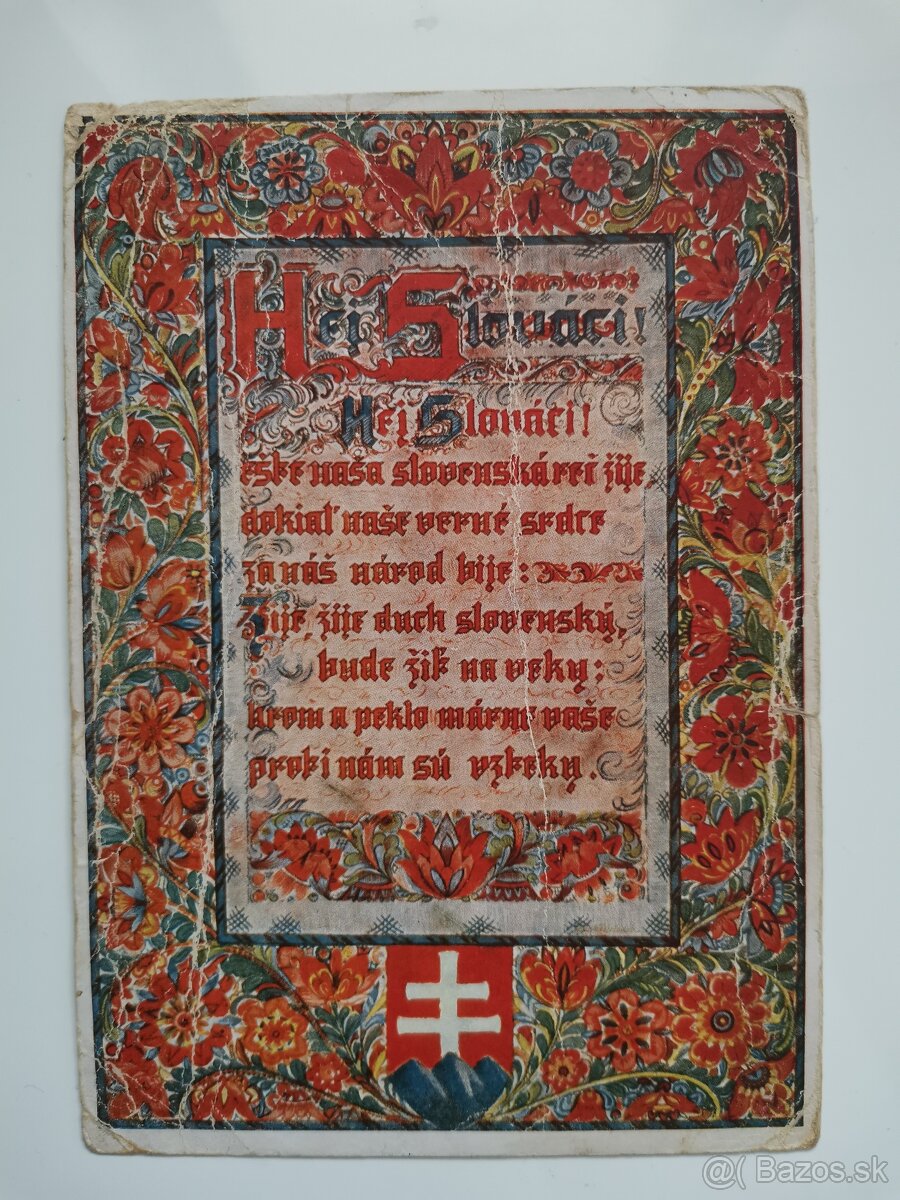 Hej Slováci!
Hej Slováci!
ešte naša slovenská reč žije
dokiaľ naše verné srdce
za náš národ bije:
Žije, žije duch slovenský,
bude žiť na veky:
hrom a peklo márne vaše
proti nám sú vzteky.
@( Bazos.sk